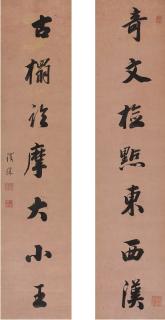 奇文檢點東西漢
古榻臨摩大小王